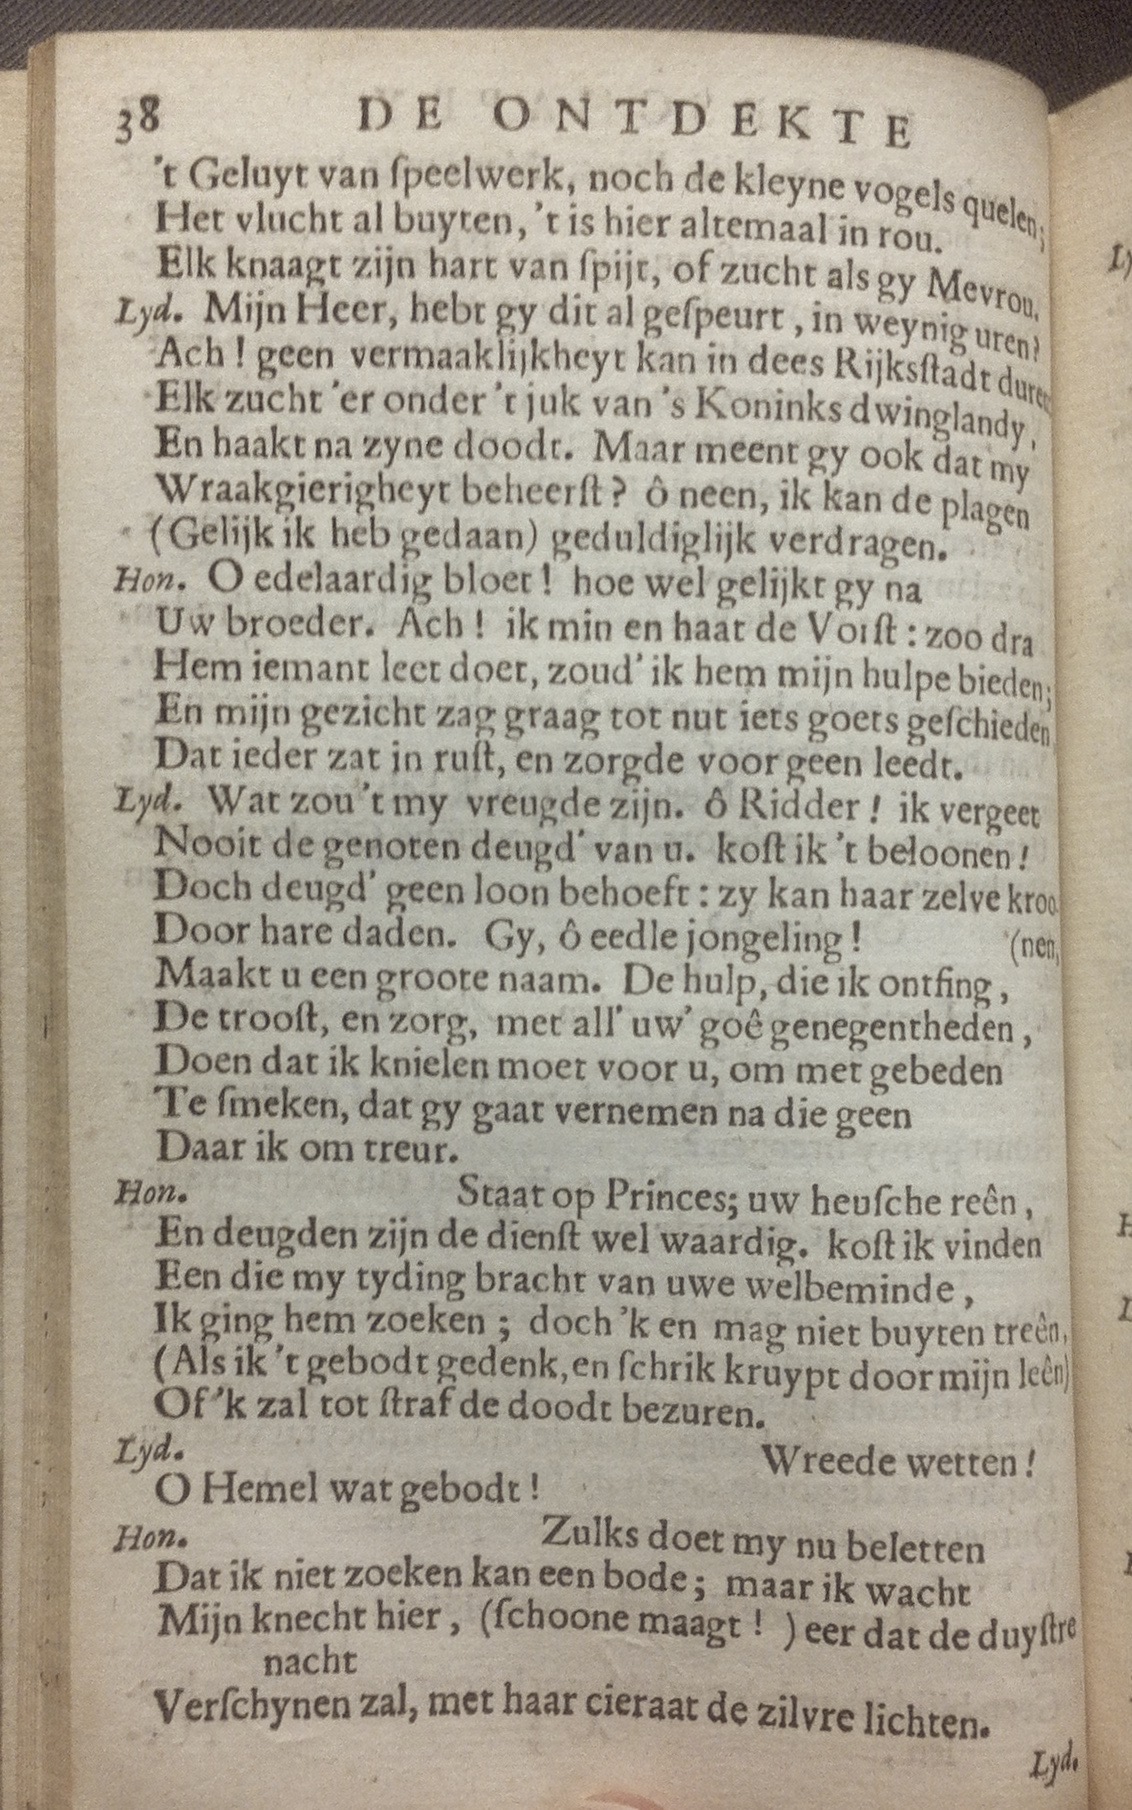 38 DE ONTDEKTE
't Geluyt van ſpeelwerk, noch de kleyne vogels quelen;
Het vlucht al buyten, 't is hier altemaal in rou.
Elk knaagt zijn hart van ſpijt, of zucht als gy Mevrou.
Lyd. Mijn Heer, hebt gy dit al geſpeurt, in weynig uren?
Ach! geen vermaaklijkheyt kan in dees Rijksſtadt duren
Elk zucht 'er onder 't juk van 's Koninks dwinglandy,
En haakt na zyne doodt. Maar meent gy ook dat my
Wraakgierigheyt beheerſt? ô neen, ik kan de plagen
(Gelijk ik heb gedaan) geduldiglijk verdragen.
Hon. O edelaardig bloet! hoe wel gelijkt gy na
Uw broeder. Ach! ik min en haat de Vorſt: zoo dra
Hem iemant leet doet, zoud' ik hem mijn hulpe bieden;
En mijn gezicht zag graag tot nut iets goets geſchieden
Dat ieder zat in ruſt, en zorgde voor geen leedt.
Lyd. Wat zou 't my vreugde zijn. ô Ridder! ik vergeet
Nooit de genoten deugd' van u. koſt ik 't beloonen!
Doch deugd' geen loon behoeft: zy kan haar zelve kroo-
Door hare daden. Gy, ô eedle jongeling! (nen,
Maakt u een groote naam. De hulp, die ik ontfing,
De trooſt, en zorg, met all' uw' goê genegentheden,
Doen dat ik knielen moet voor u, om met gebeden
Te ſmeken, dat gy gaat vernemen na die geen
Daar ik om treur.
Hon. Staat op Princes; uw heuſche reên,
En deugden zijn de dienſt wel waardig. koſt ik vinden
Een die my tyding bracht van uwe welbeminde,
Ik ging hem zoeken; doch 'k en mag niet buyten treên,
(Als ik 't gebodt gedenk, en ſchrik kruypt door mijn leên)
Of 'k zal tot ſtraf de doodt bezuren.
Lyd. Wreede wetten!
O Hemel wat gebodt!
Hon. Zulks doet my nu beletten
Dat ik niet zoeken kan een bode; maar ik wacht
Mijn knecht hier, (ſchoone maagt! ) eer dat de duyſtre
nacht
Verſchynen zal, met haar cieraat de zilvre lichten.
Lyd.